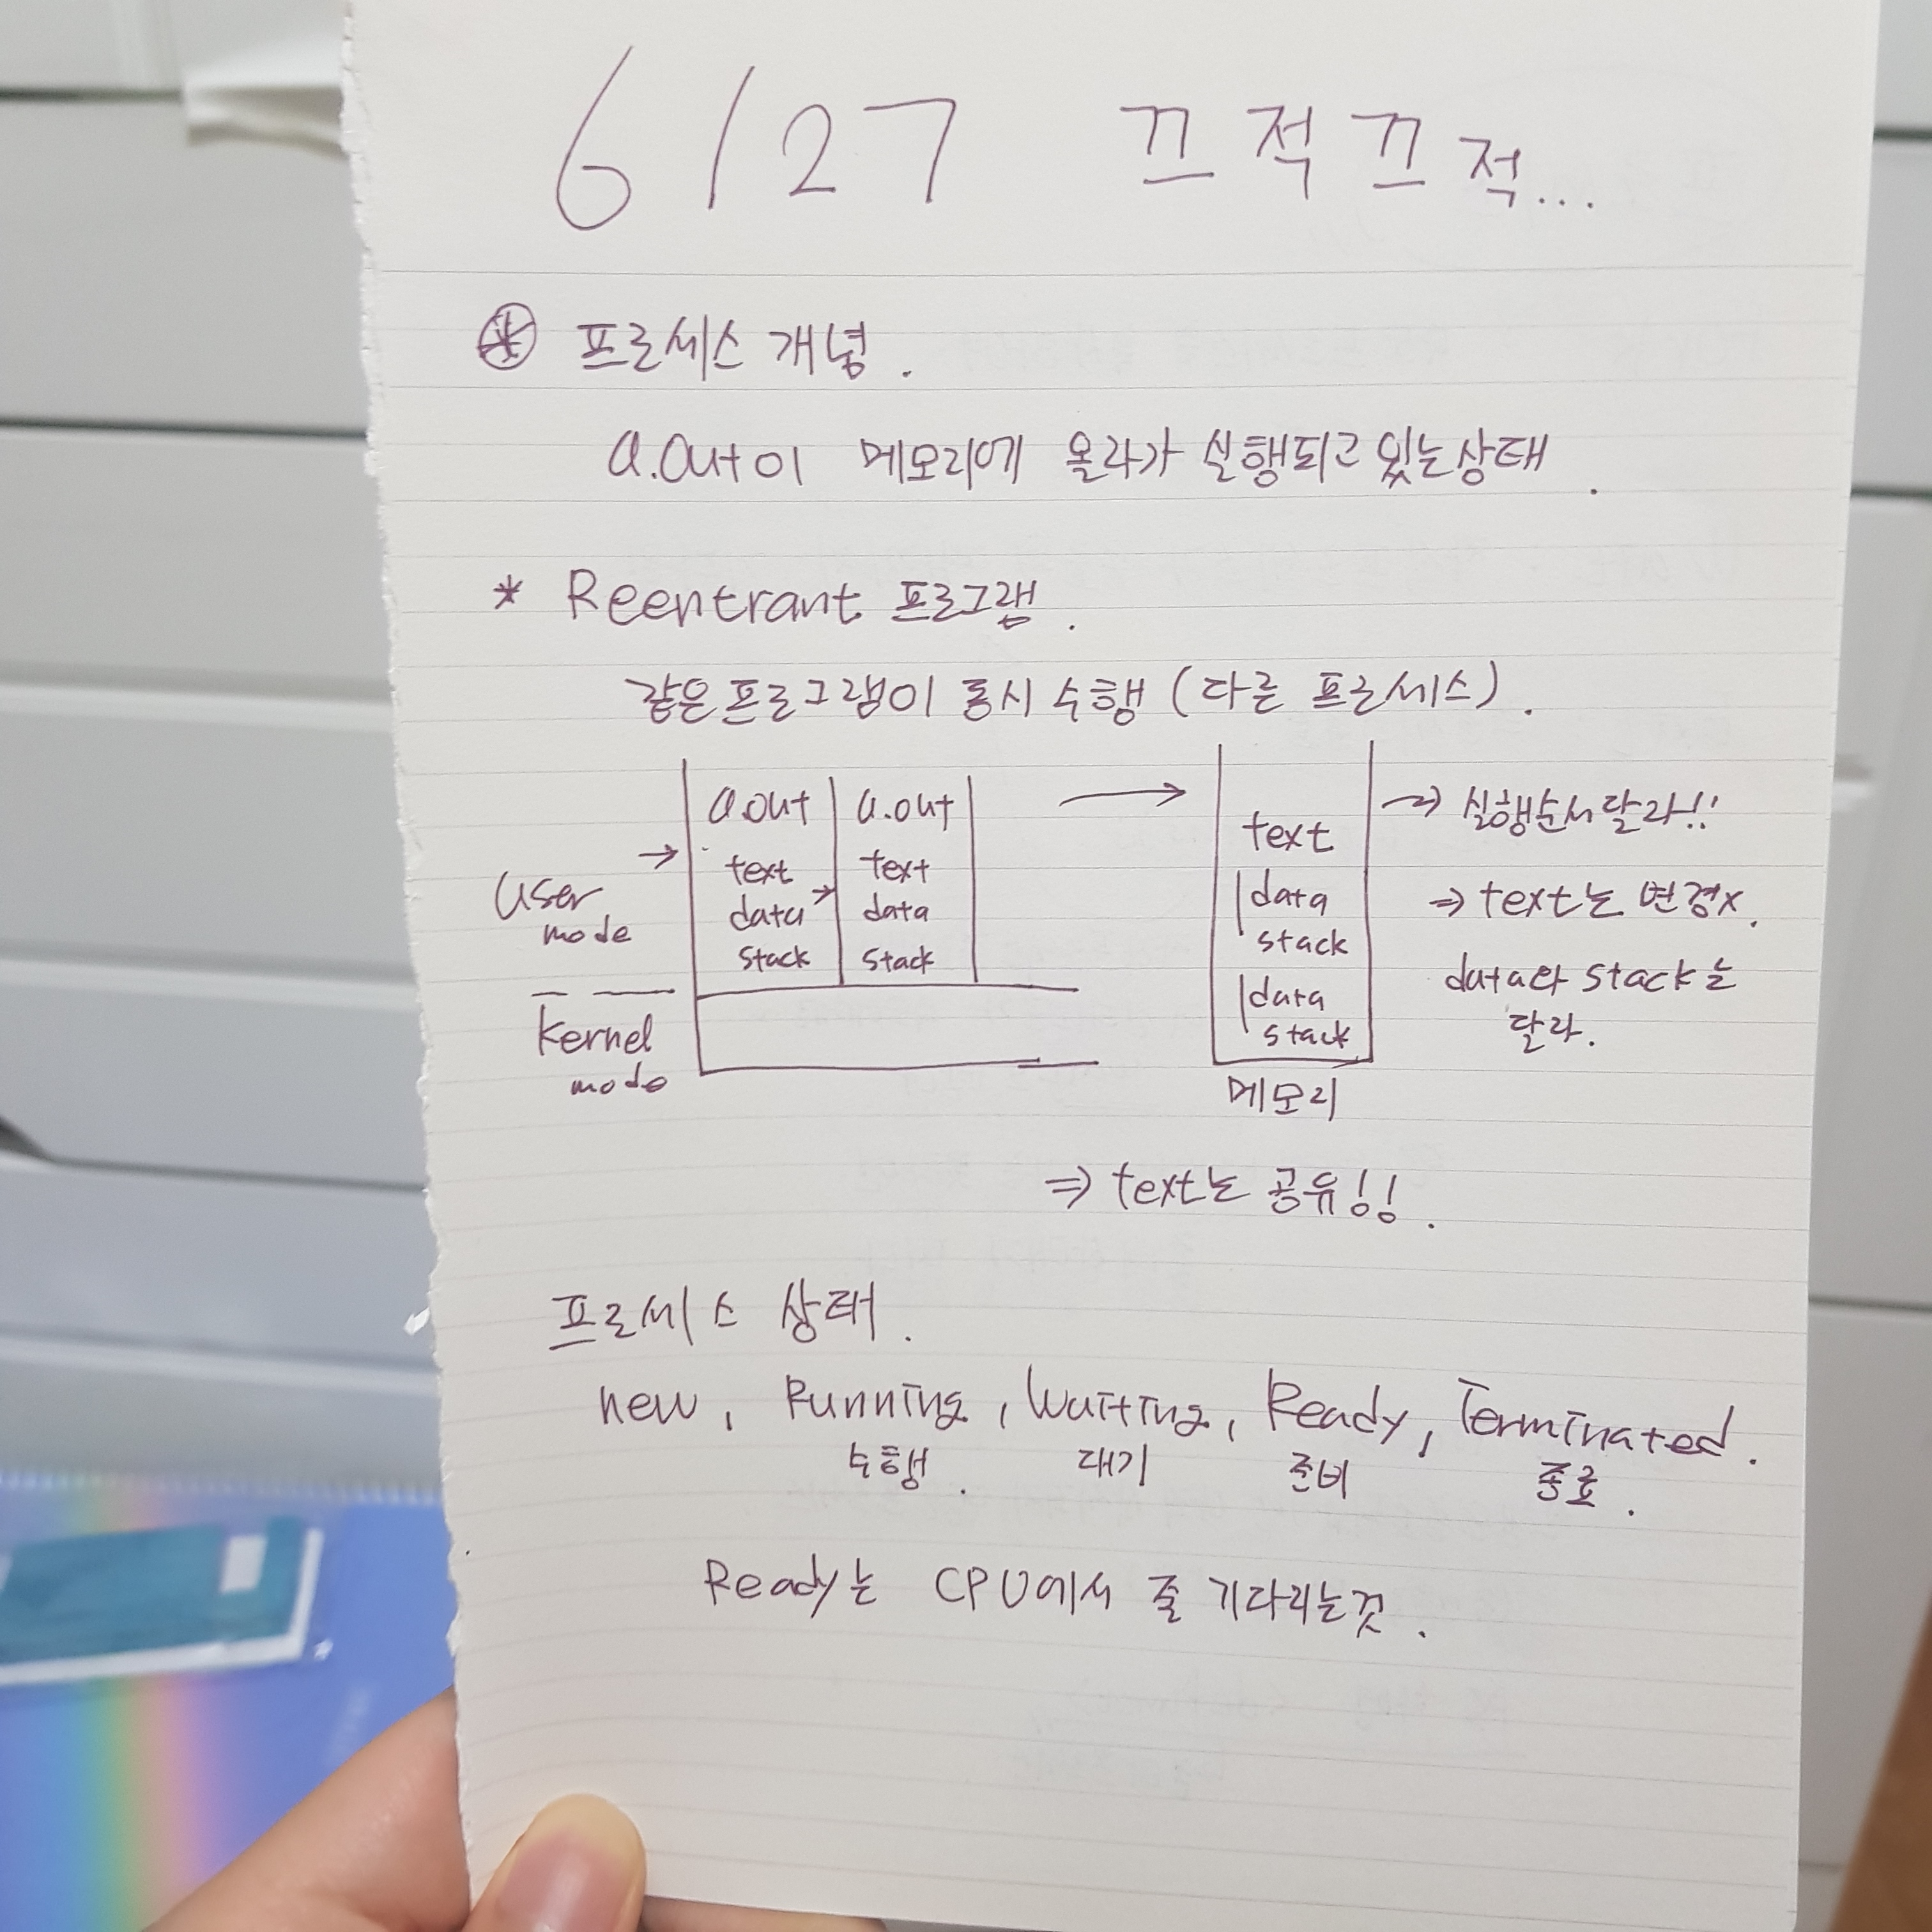 6/27 끄적끄적...
프로세스 개념.
a.out이 메모리에 올라가 실행되고 있는 상태.
* Reentrant 프로그램.
같은 프로그램이 동시 수행 (다른 프로세스).
a.out a.out
text text
data data
stack stack
User
mode
Kernel
mode
text
data
stack
data
stack
메모리
→ 실행순서 달라!!
⇒ text는 변경x.
data와 stack은
달라.
⇒ text는 공유!!.
프로세스 상태.
new, Running, Waiting, Ready, Terminated.
수행. 대기 준비 종료.
Ready는 CPU에서 줄 기다리는것.